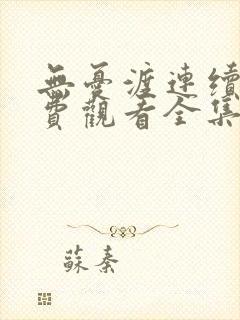 無憂渡連續
費觀看全集
蘇秦